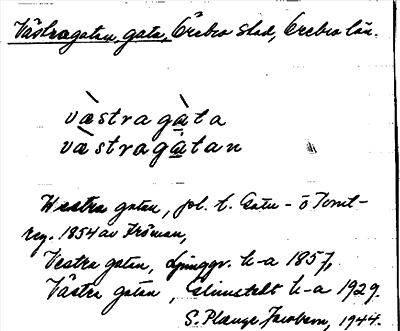 Västragatan, gata, Örebro stad, Örebro län.
västragàta
västragàtan
Westra gatan, pol. t. Gatu- o Tomt-
reg. 1854 av Fröman,
Vestra gatan, Ljunggr. k-a 1857,
Västra gatan, k-a 1929.
S. Plauge Jacobson, 1944.